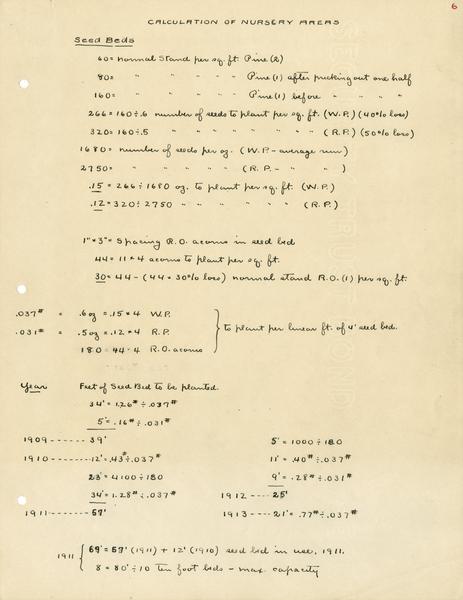 6
CALCULATION OF NURSERY AREAS
Seed Beds
60 = normal stand per sq. ft. Pine (2)
80 = " " " " " Pine (1) after pricking out one half
160 = " " " " " Pine (1) before " " " "
266 = 160 ÷ .6 number of seeds to plant per sq. ft. (W.P.) (40% loss)
320 = 160 ÷ .5 " " " " " " " " (R.P.) (50% loss)
1680 = number of seeds per oz. (W.P. - average run)
2750 = " " " " " (R.P. - " ")
.15 = 266 ÷ 1680 oz. to plant per sq. ft. (W.P.)
.12 = 320 ÷ 2750 " " " " " " (R.P.)
1" × 3" = Spacing R.O. acorns in seed bed
44 = 11 × 4 acorns to plant per sq. ft.
30 = 44 - (44 × 30% loss) normal stand R.O. (1) per sq. ft.
.037# = .6 oz = .15 × 4 W.P.
.031# = .5 oz = .12 × 4 R.P. } to plant per linear ft. of 4' seed bed.
180 = 44 × 4 R.O. acorns
Year Feet of Seed Bed to be planted.
34' = 1.26# ÷ .037#
5' = .16# ÷ .031#
1909 ------ 39'
1910 ------ 12' = .43# ÷ .037#
23' = 4100 ÷ 180
34' = 1.28# ÷ .037#
1911 ------ 57'
5' = 1000 ÷ 180
11' = .40# ÷ .037#
9' = .28# ÷ .031#
1912 ---- 25'
1913 ---- 21' = .77# ÷ .037#
1911 { 69' = 57' (1911) + 12' (1910) seed bed in use, 1911.
8 = 80' ÷ 10 ten foot beds - max. capacity